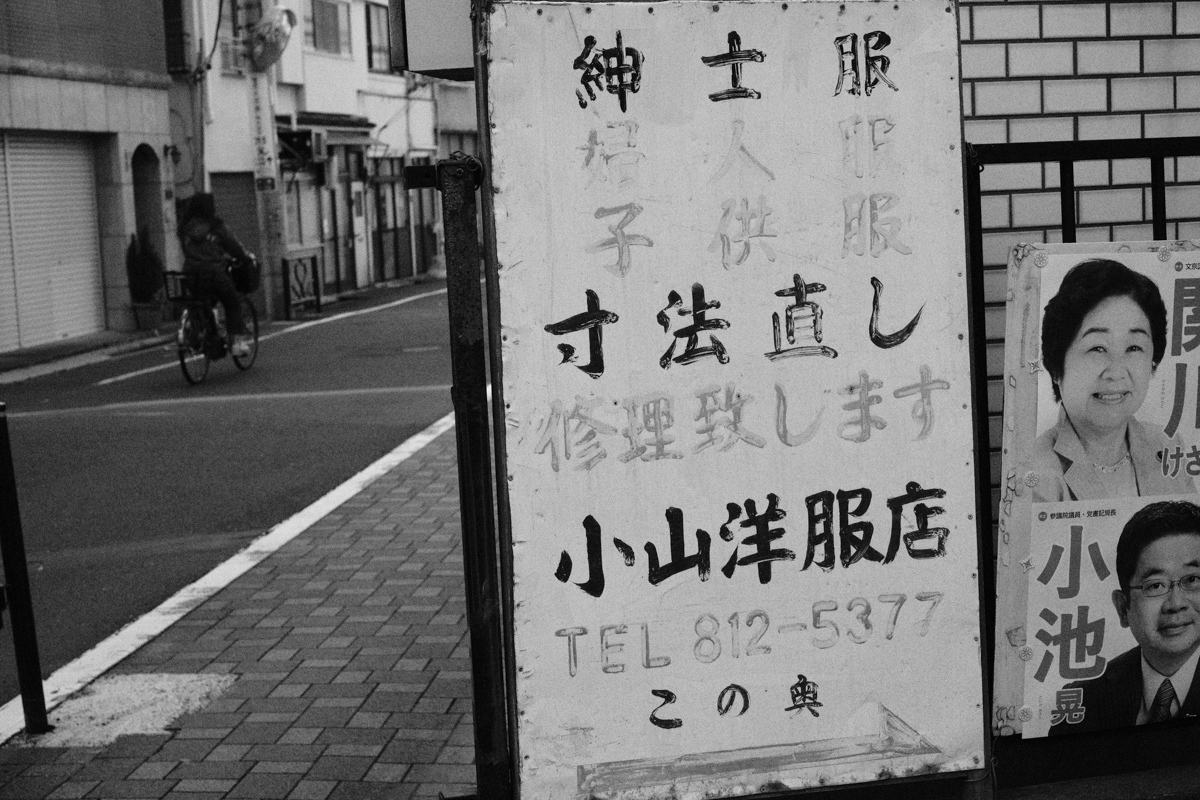 紳士服
婦人服
子供服
寸法直し
修理致します
小山洋服店
TEL 812-5377
この奥
文京
関川
けさ
参議院議員・党書記局長
小池
晃